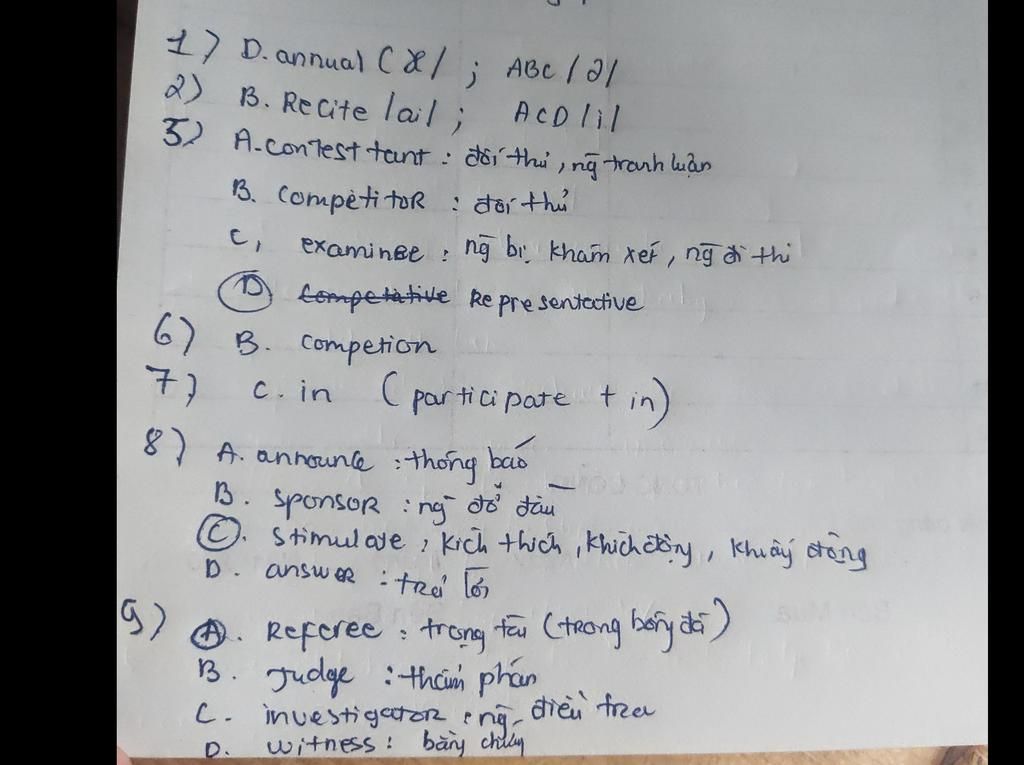 1) D. annual (æ/ ; ABC /ə/
2) B. Recite /ai/ ; ACD /i/
3) A. contesttant : đối thủ, ng̃ tranh luận
B. competitor : đối thủ
C, examinee : ng̃ bị khám xét, ng̃ đi thi
D Competative Representative
6) B. competion
7) C. in (participate + in)
8) A. announce : thông báo
B. sponsor : ng̃ đỡ đầu
C. stimulate ; kích thích, khích động, khuấy động
D. answer : trả lời
9) A. Referee : trọng tài (trong bóng đá)
B. Judge : thẩm phán
C. investigator : ng̃ điều tra
D. witness : bằng chứng